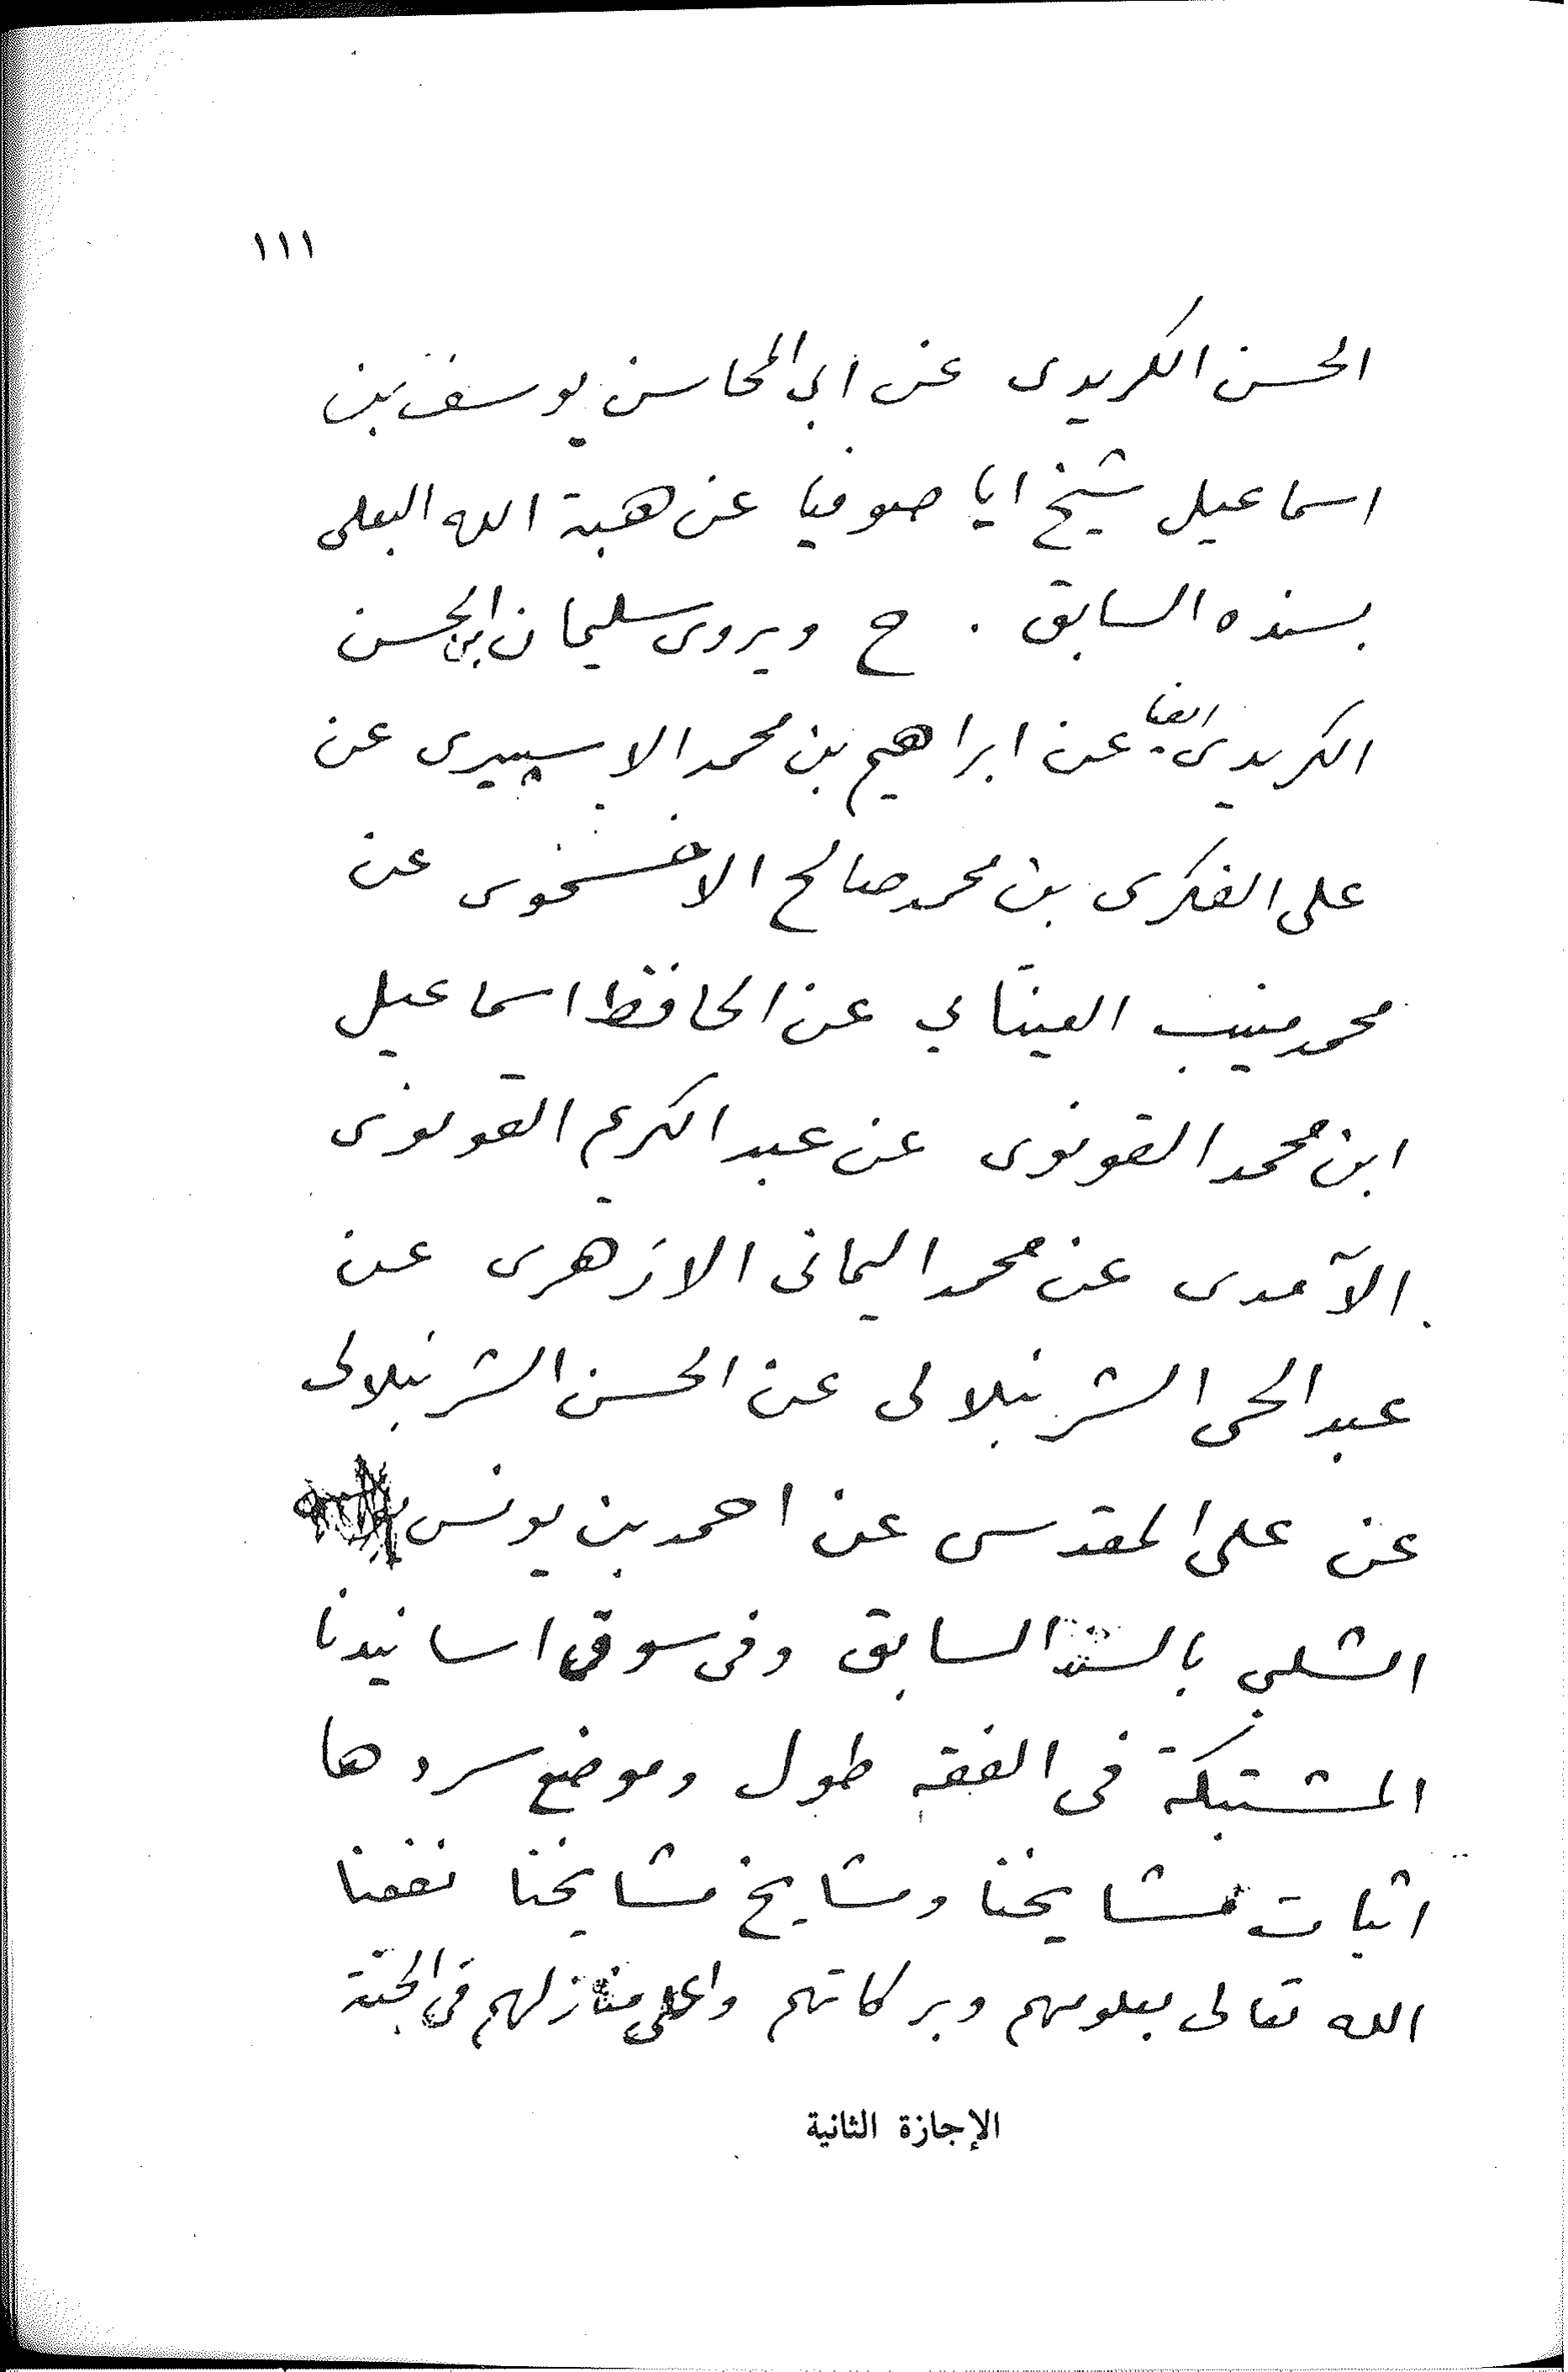 ١١١
الحسن الكريدى عن ابى المحاسن يوسف بن
اسماعيل شيخ ايا صوفيا عن هبة الله البعلى
بسنده السابق . ح ويروى سليمان بن الحسن
الكريدى ايضا عن ابراهيم بن محمد الاسپيرى عن
على الفكرى بن محمد صالح الاخسخوى عن
محمد منيب العينتابي عن الحافظ اسماعيل
ابن محمد القونوى عن عبد الكريم القونوى
الآمدى عن محمد اليمانى الازهرى عن
عبد الحى الشرنبلالى عن الحسن الشرنبلالى
عن على المقدسى عن احمد بن يونس
الشلبي بالسند السابق وفى سوق اسانيدنا
المشتبكة فى الفقه طول وموضع سردها
اثبات مشايخنا ومشايخ مشايخنا نفعنا
الله تعالى بعلومهم وبركاتهم واعلى منازلهم فى الجنة
الإجازة الثانية